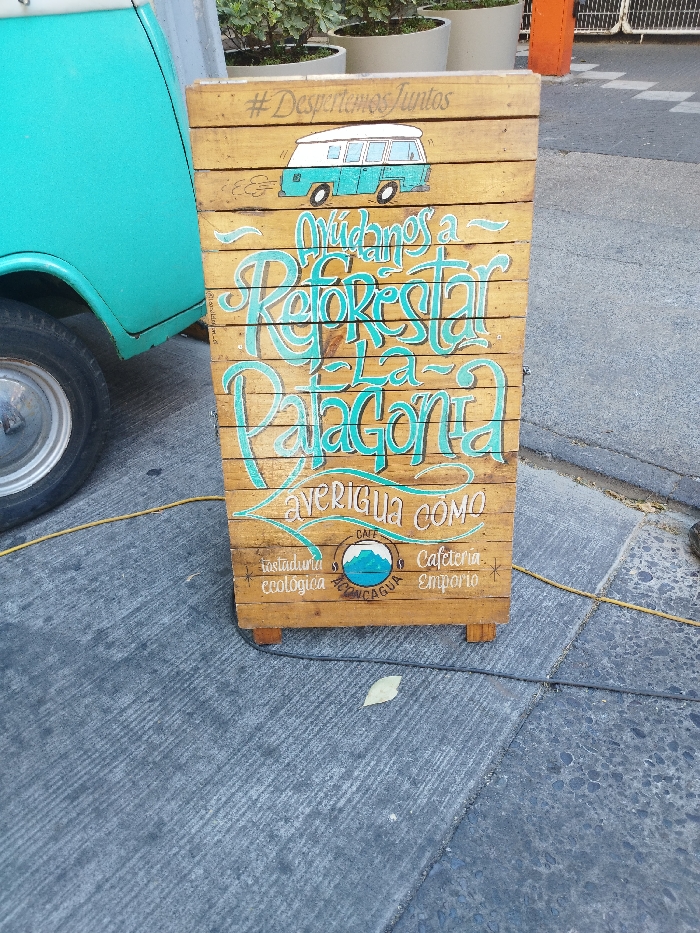 #DespertemosJuntos
Ayúdanos a
Reforestar
-La-
Patagonia
averigua cómo
Tostaduría
ecológica
CAFÉ
ACONCAGUA
Cafetería
Emporio